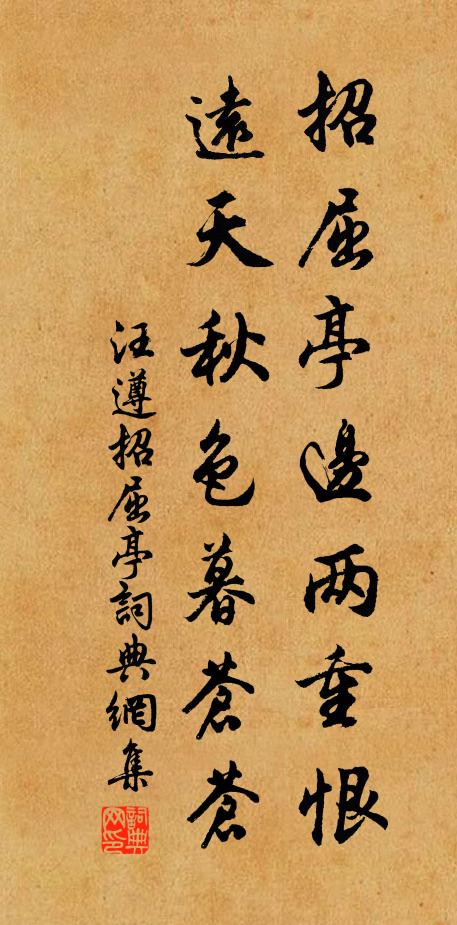 招屈亭邊两重恨
遠天秋色暮蒼蒼
汪遵招屈亭詞典網集
詞典网印